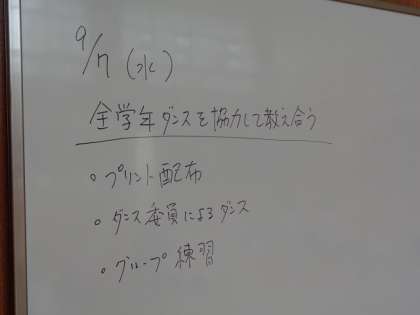 9/7(水)
全学年ダンスを協力して教え合う
。プリント配布
。ダンス委員によるダンス
。グループ練習